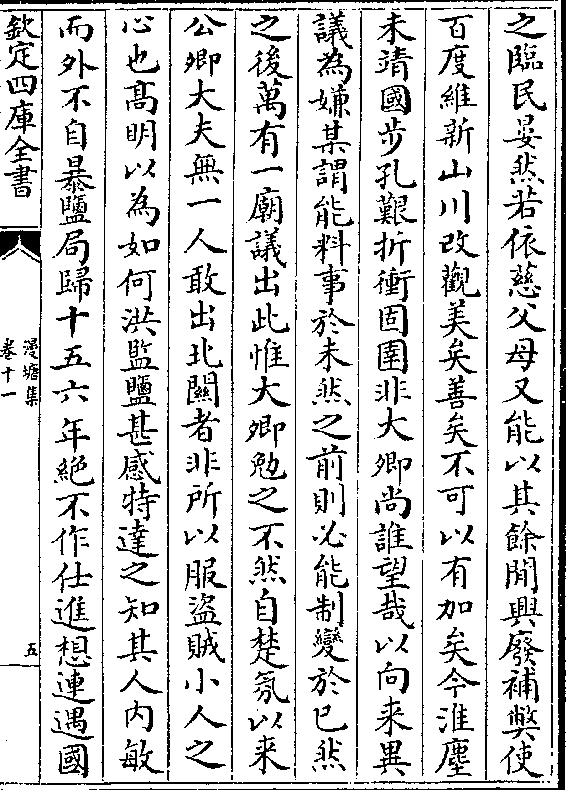 之臨民晏然若依慈父母又能以其餘閒興廢補弊使
百度維新山川改觀美矣善矣不可以有加矣今淮塵
未靖國步孔艱折衝固圉非大卿尚誰望哉以向来異
議為嫌某謂能料事於未然之前則必能制變於已然
之後萬有一廟議出此惟大卿勉之不然自楚氛以来
公卿大夫無一人敢出北闗者非所以服盜賊小人之
心也髙明以為如何洪監鹽甚感特達之知其人内敏
而外不自暴鹽局歸十五六年絶不作仕進想連遇國
欽定四庫全書
漫塘集
卷十一
五